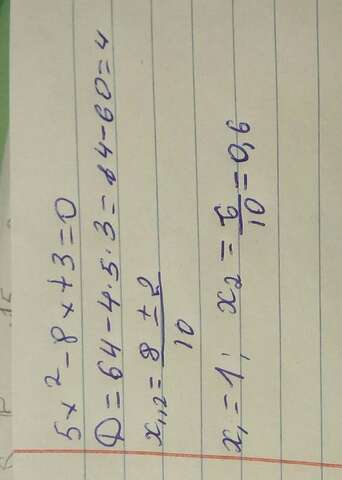 5x² - 8x + 3 = 0
D = 64 - 4·5·3 = 64 - 60 = 4
x₁,₂ = (8 ± 2)/10
x₁ = 1; x₂ = 6/10 = 0,6